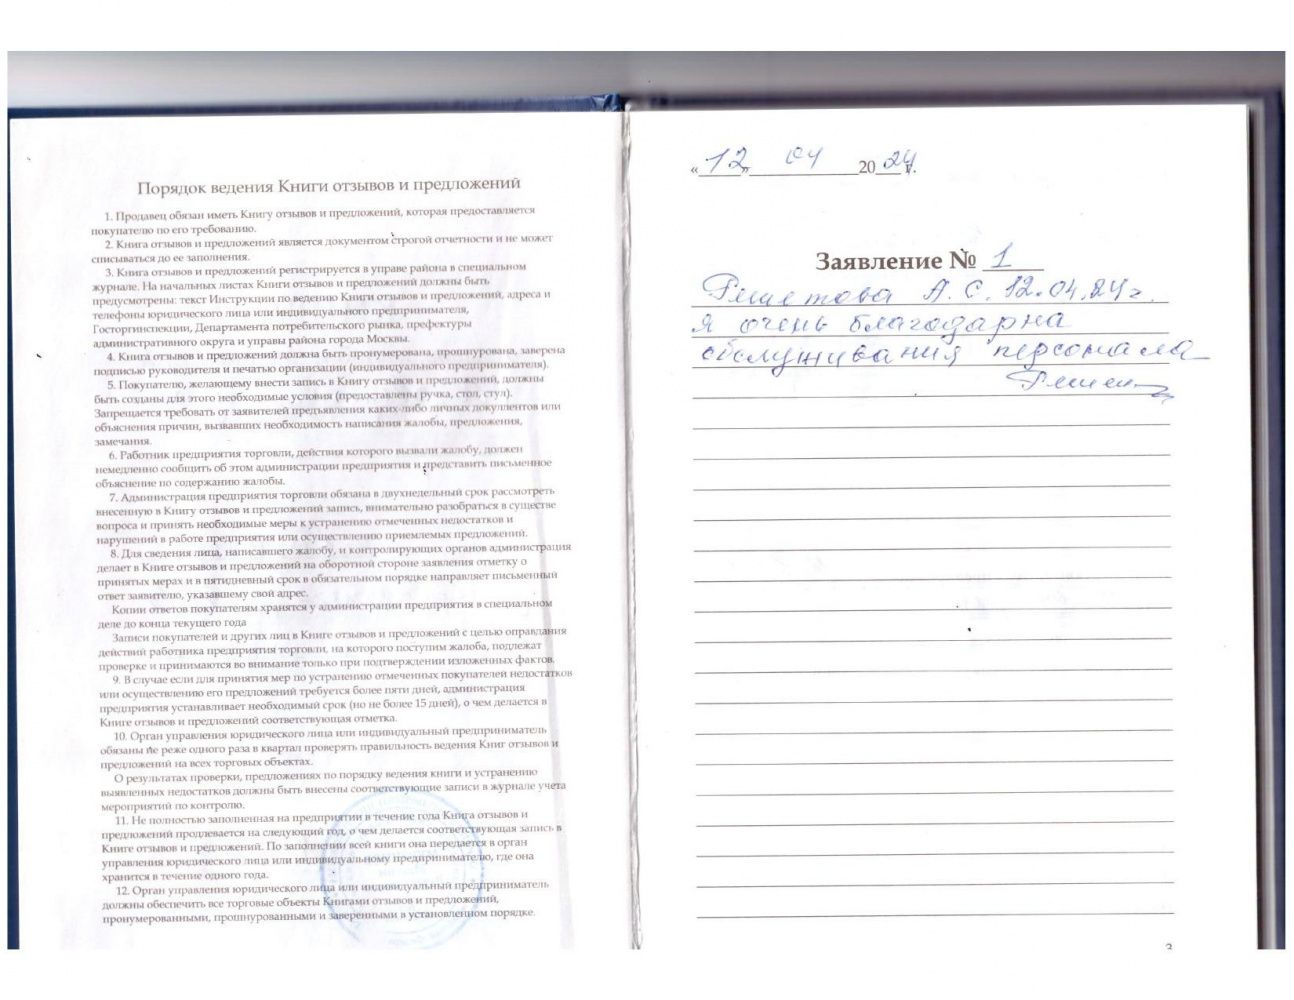 Порядок ведения Книги отзывов и предложений
1. Продавец обязан иметь Книгу отзывов и предложений, которая предоставляется
покупателю по его требованию.
2. Книга отзывов и предложений является документом строгой отчетности и не может
списываться до ее заполнения.
3. Книга отзывов и предложений регистрируется в управе района в специальном
журнале. На начальных листах Книги отзывов и предложений должны быть
предусмотрены: текст Инструкции по ведению Книги отзывов и предложений, адреса и
телефоны юридического лица или индивидуального предпринимателя,
Госторгинспекции, Департамента потребительского рынка, префектуры
административного округа и управы района города Москвы.
4. Книга отзывов и предложений должна быть пронумерована, прошнурована, заверена
подписью руководителя и печатью организации (индивидуального предпринимателя).
5. Покупателю, желающему внести запись в Книгу отзывов и предложений, должны
быть созданы для этого необходимые условия (предоставлены ручка, стол, стул).
Запрещается требовать от заявителей предъявления каких-либо личных документов или
объяснения причин, вызвавших необходимость написания жалобы, предложения,
замечания.
6. Работник предприятия торговли, действия которого вызвали жалобу, должен
немедленно сообщить об этом администрации предприятия и представить письменное
объяснение по содержанию жалобы.
7. Администрация предприятия торговли обязана в двухнедельный срок рассмотреть
внесенную в Книгу отзывов и предложений запись, внимательно разобраться в существе
вопроса и принять необходимые меры к устранению отмеченных недостатков и
нарушений в работе предприятия или осуществлению приемлемых предложений.
8. Для сведения лица, написавшего жалобу, и контролирующих органов администрация
делает в Книге отзывов и предложений на оборотной стороне заявления отметку о
принятых мерах и в пятидневный срок в обязательном порядке направляет письменный
ответ заявителю, указавшему свой адрес.
Копии ответов покупателям хранятся у администрации предприятия в специальном
деле до конца текущего года
Записи покупателей и других лиц в Книге отзывов и предложений с целью оправдания
действий работника предприятия торговли, на которого поступим жалоба, подлежат
проверке и принимаются во внимание только при подтверждении изложенных фактов.
9. В случае если для принятия мер по устранению отмеченных покупателей недостатков
или осуществлению его предложений требуется более пяти дней, администрация
предприятия устанавливает необходимый срок (но не более 15 дней), о чем делается в
Книге отзывов и предложений соответствующая отметка.
10. Орган управления юридического лица или индивидуальный предприниматель
обязаны не реже одного раза в квартал проверять правильность ведения Книг отзывов и
предложений на всех торговых объектах.
О результатах проверки, предложениях по порядку ведения книги и устранению
выявленных недостатков должны быть внесены соответствующие записи в журнале учета
мероприятий по контролю.
11. Не полностью заполненная на предприятии в течение года Книга отзывов и
предложений продлевается на следующий год, о чем делается соответствующая запись в
Книге отзывов и предложений. По заполнении всей книги она передается в орган
управления юридического лица или индивидуальному предпринимателю, где она
хранится в течение одного года.
12. Орган управления юридического лица или индивидуальный предприниматель
должны обеспечить все торговые объекты Книгами отзывов и предложений,
пронумерованными, прошнурованными и заверенными в установленном порядке.
«12» 04 2024 г.
Заявление № 1
Решетова А. С. 12.04.24г.
Я очень благодарна
обслуживания персонала
3